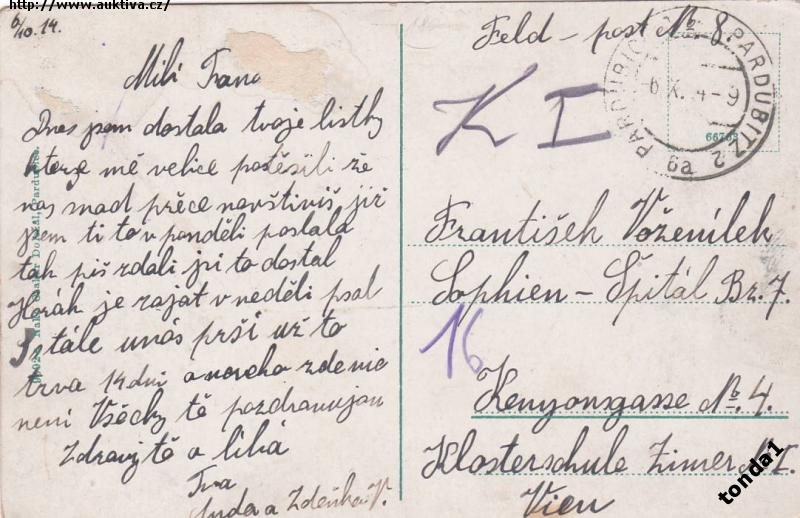 http://www.auktiva.cz/
6/10.14.
Milí Frano
Dnes jsem dostala tvoje listky
kterze mé velice potěsili že
nas snad přece navštiviš již
jsem ti to v pondělí poslala
tak piš zdali jsi to dostal
Horák je zajat v neděli psal
Stále unás prší už to
trva 14 dni a noveho zde nic
není Všěchy tě pozdravujou
Zdravý tě a líbá
Tva
a Zdeňka V.
Feld-post No. 8.
K I
PARDUBITZ 2
PARDUBICE
6a
6 X. 4-9
66768
František Voženílek
Sophien-Špitál Br. 7.
16
Kenyongasse No. 4.
Klosterschule Zimer N I
Vien
tonda1